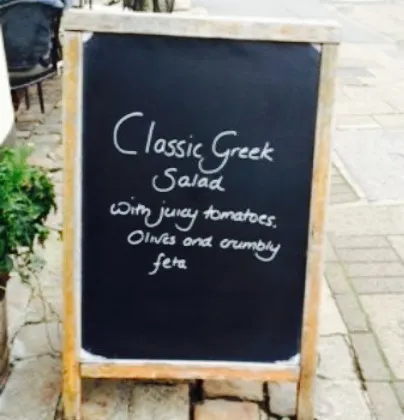 Classic Greek
Salad
With juicy tomatoes,
Olives and crumbly
feta